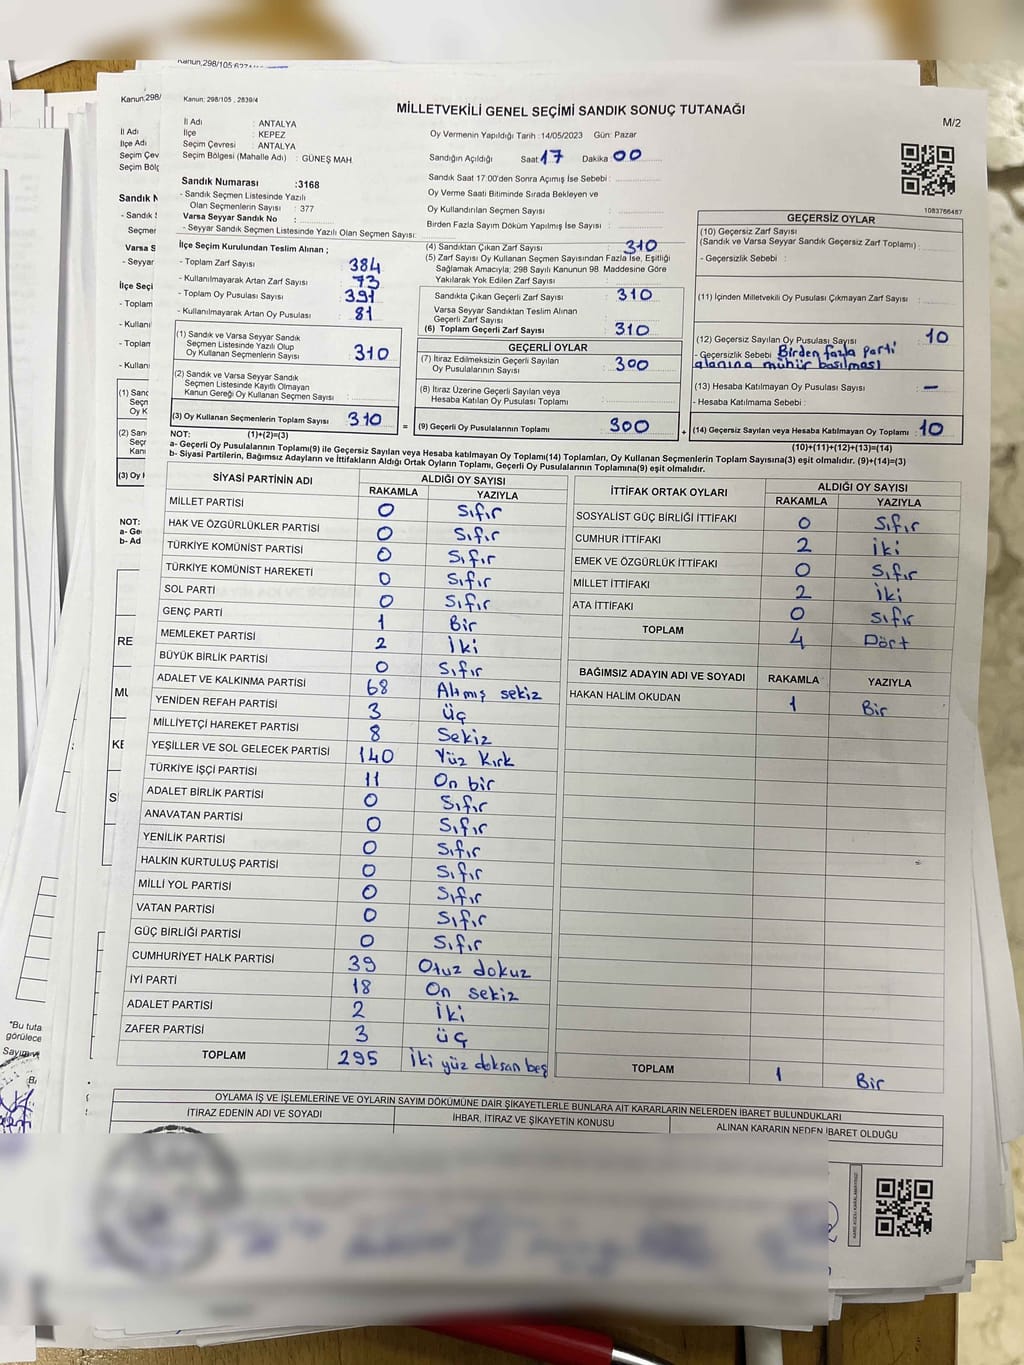 Kanun: 298/105 , 2839/4
MİLLETVEKİLİ GENEL SEÇİMİ SANDIK SONUÇ TUTANAĞI
M/2
İl Adı : ANTALYA
İlçe : KEPEZ
Seçim Çevresi : ANTALYA
Seçim Bölgesi (Mahalle Adı) : GÜNEŞ MAH
Oy Vermenin Yapıldığı Tarih :14/05/2023 Gün: Pazar
Sandığın Açıldığı Saat 17 Dakika 00
Sandık Saat 17:00'den Sonra Açımış İse Sebebi :
Oy Verme Saati Bitiminde Sırada Bekleyen ve
Oy Kullandırılan Seçmen Sayısı :
Birden Fazla Sayım Döküm Yapılmış İse Sayısı :
Sandık Numarası :3168
- Sandık Seçmen Listesinde Yazılı
Olan Seçmenlerin Sayısı : 377
Varsa Seyyar Sandık No :
- Seyyar Sandık Seçmen Listesinde Yazılı Olan Seçmen Sayısı:
1083766487
İlçe Seçim Kurulundan Teslim Alınan ;
- Toplam Zarf Sayısı : 384
- Kullanılmayarak Artan Zarf Sayısı : 73
- Toplam Oy Pusulası Sayısı : 391
- Kullanılmayarak Artan Oy Pusulası : 81
(1) Sandık ve Varsa Seyyar Sandık
Seçmen Listesinde Yazılı Olup
Oy Kullanan Seçmenlerin Sayısı : 310
(2) Sandık ve Varsa Seyyar Sandık
Seçmen Listesinde Kayıtlı Olmayan
Kanun Gereği Oy Kullanan Seçmen Sayısı :
(3) Oy Kullanan Seçmenlerin Toplam Sayısı : 310
(4) Sandıktan Çıkan Zarf Sayısı : 310
(5) Zarf Sayısı Oy Kullanan Seçmen Sayısından Fazla İse, Eşitliği
Sağlamak Amacıyla; 298 Sayılı Kanunun 98. Maddesine Göre
Yakılarak Yok Edilen Zarf Sayısı :
Sandıkta Çıkan Geçerli Zarf Sayısı : 310
Varsa Seyyar Sandıktan Teslim Alınan
Geçerli Zarf Sayısı :
(6) Toplam Geçerli Zarf Sayısı : 310
GEÇERLİ OYLAR
(7) İtiraz Edilmeksizin Geçerli Sayılan
Oy Pusulalarının Sayısı : 300
(8) İtiraz Üzerine Geçerli Sayılan veya
Hesaba Katılan Oy Pusulası Toplamı :
= (9) Geçerli Oy Pusulalarının Toplamı : 300 +
GEÇERSİZ OYLAR
(10) Geçersiz Zarf Sayısı
(Sandık ve Varsa Seyyar Sandık Geçersiz Zarf Toplamı) :
- Geçersizlik Sebebi :
(11) İçinden Milletvekili Oy Pusulası Çıkmayan Zarf Sayısı :
(12) Geçersiz Sayılan Oy Pusulası Sayısı : 10
- Geçersizlik Sebebi : Birden fazla parti
alanına mühür basılması
(13) Hesaba Katılmayan Oy Pusulası Sayısı : –
- Hesaba Katılmama Sebebi :
(14) Geçersiz Sayılan veya Hesaba Katılmayan Oy Toplamı : 10
NOT: (1)+(2)=(3)
(10)+(11)+(12)+(13)=(14)
a- Geçerli Oy Pusulalarının Toplamı(9) ile Geçersiz Sayılan veya Hesaba katılmayan Oy Toplamı(14) Toplamları, Oy Kullanan Seçmenlerin Toplam Sayısına(3) eşit olmalıdır. (9)+(14)=(3)
b- Siyasi Partilerin, Bağımsız Adayların ve İttifakların Aldığı Ortak Oyların Toplamı, Geçerli Oy Pusulalarının Toplamına(9) eşit olmalıdır.
SİYASİ PARTİNİN ADI ALDIĞI OY SAYISI
RAKAMLA YAZIYLA
MİLLET PARTİSİ 0 Sıfır
HAK VE ÖZGÜRLÜKLER PARTİSİ 0 Sıfır
TÜRKİYE KOMÜNİST PARTİSİ 0 Sıfır
TÜRKİYE KOMÜNİST HAREKETİ 0 Sıfır
SOL PARTİ 0 Sıfır
GENÇ PARTİ 1 Bir
MEMLEKET PARTİSİ 2 İki
BÜYÜK BİRLİK PARTİSİ 0 Sıfır
ADALET VE KALKINMA PARTİSİ 68 Altmış sekiz
YENİDEN REFAH PARTİSİ 3 Üç
MİLLİYETÇİ HAREKET PARTİSİ 8 Sekiz
YEŞİLLER VE SOL GELECEK PARTİSİ 140 Yüz Kırk
TÜRKİYE İŞÇİ PARTİSİ 11 On bir
ADALET BİRLİK PARTİSİ 0 Sıfır
ANAVATAN PARTİSİ 0 Sıfır
YENİLİK PARTİSİ 0 Sıfır
HALKIN KURTULUŞ PARTİSİ 0 Sıfır
MİLLİ YOL PARTİSİ 0 Sıfır
VATAN PARTİSİ 0 Sıfır
GÜÇ BİRLİĞİ PARTİSİ 0 Sıfır
CUMHURİYET HALK PARTİSİ 39 Otuz dokuz
İYİ PARTİ 18 On sekiz
ADALET PARTİSİ 2 İki
ZAFER PARTİSİ 3 üç
TOPLAM 295 İki yüz doksan beş
İTTİFAK ORTAK OYLARI ALDIĞI OY SAYISI
RAKAMLA YAZIYLA
SOSYALİST GÜÇ BİRLİĞİ İTTİFAKI 0 Sıfır
CUMHUR İTTİFAKI 2 İki
EMEK VE ÖZGÜRLÜK İTTİFAKI 0 Sıfır
MİLLET İTTİFAKI 2 İki
ATA İTTİFAKI 0 Sıfır
TOPLAM 4 Dört
BAĞIMSIZ ADAYIN ADI VE SOYADI RAKAMLA YAZIYLA
HAKAN HALİM OKUDAN 1 Bir
TOPLAM 1 Bir
OYLAMA İŞ VE İŞLEMLERİNE VE OYLARIN SAYIM DÖKÜMÜNE DAİR ŞİKAYETLERLE BUNLARA AİT KARARLARIN NELERDEN İBARET BULUNDUKLARI
İTİRAZ EDENİN ADI VE SOYADI İHBAR, İTİRAZ VE ŞİKAYETİN KONUSU ALINAN KARARIN NEDEN İBARET OLDUĞU